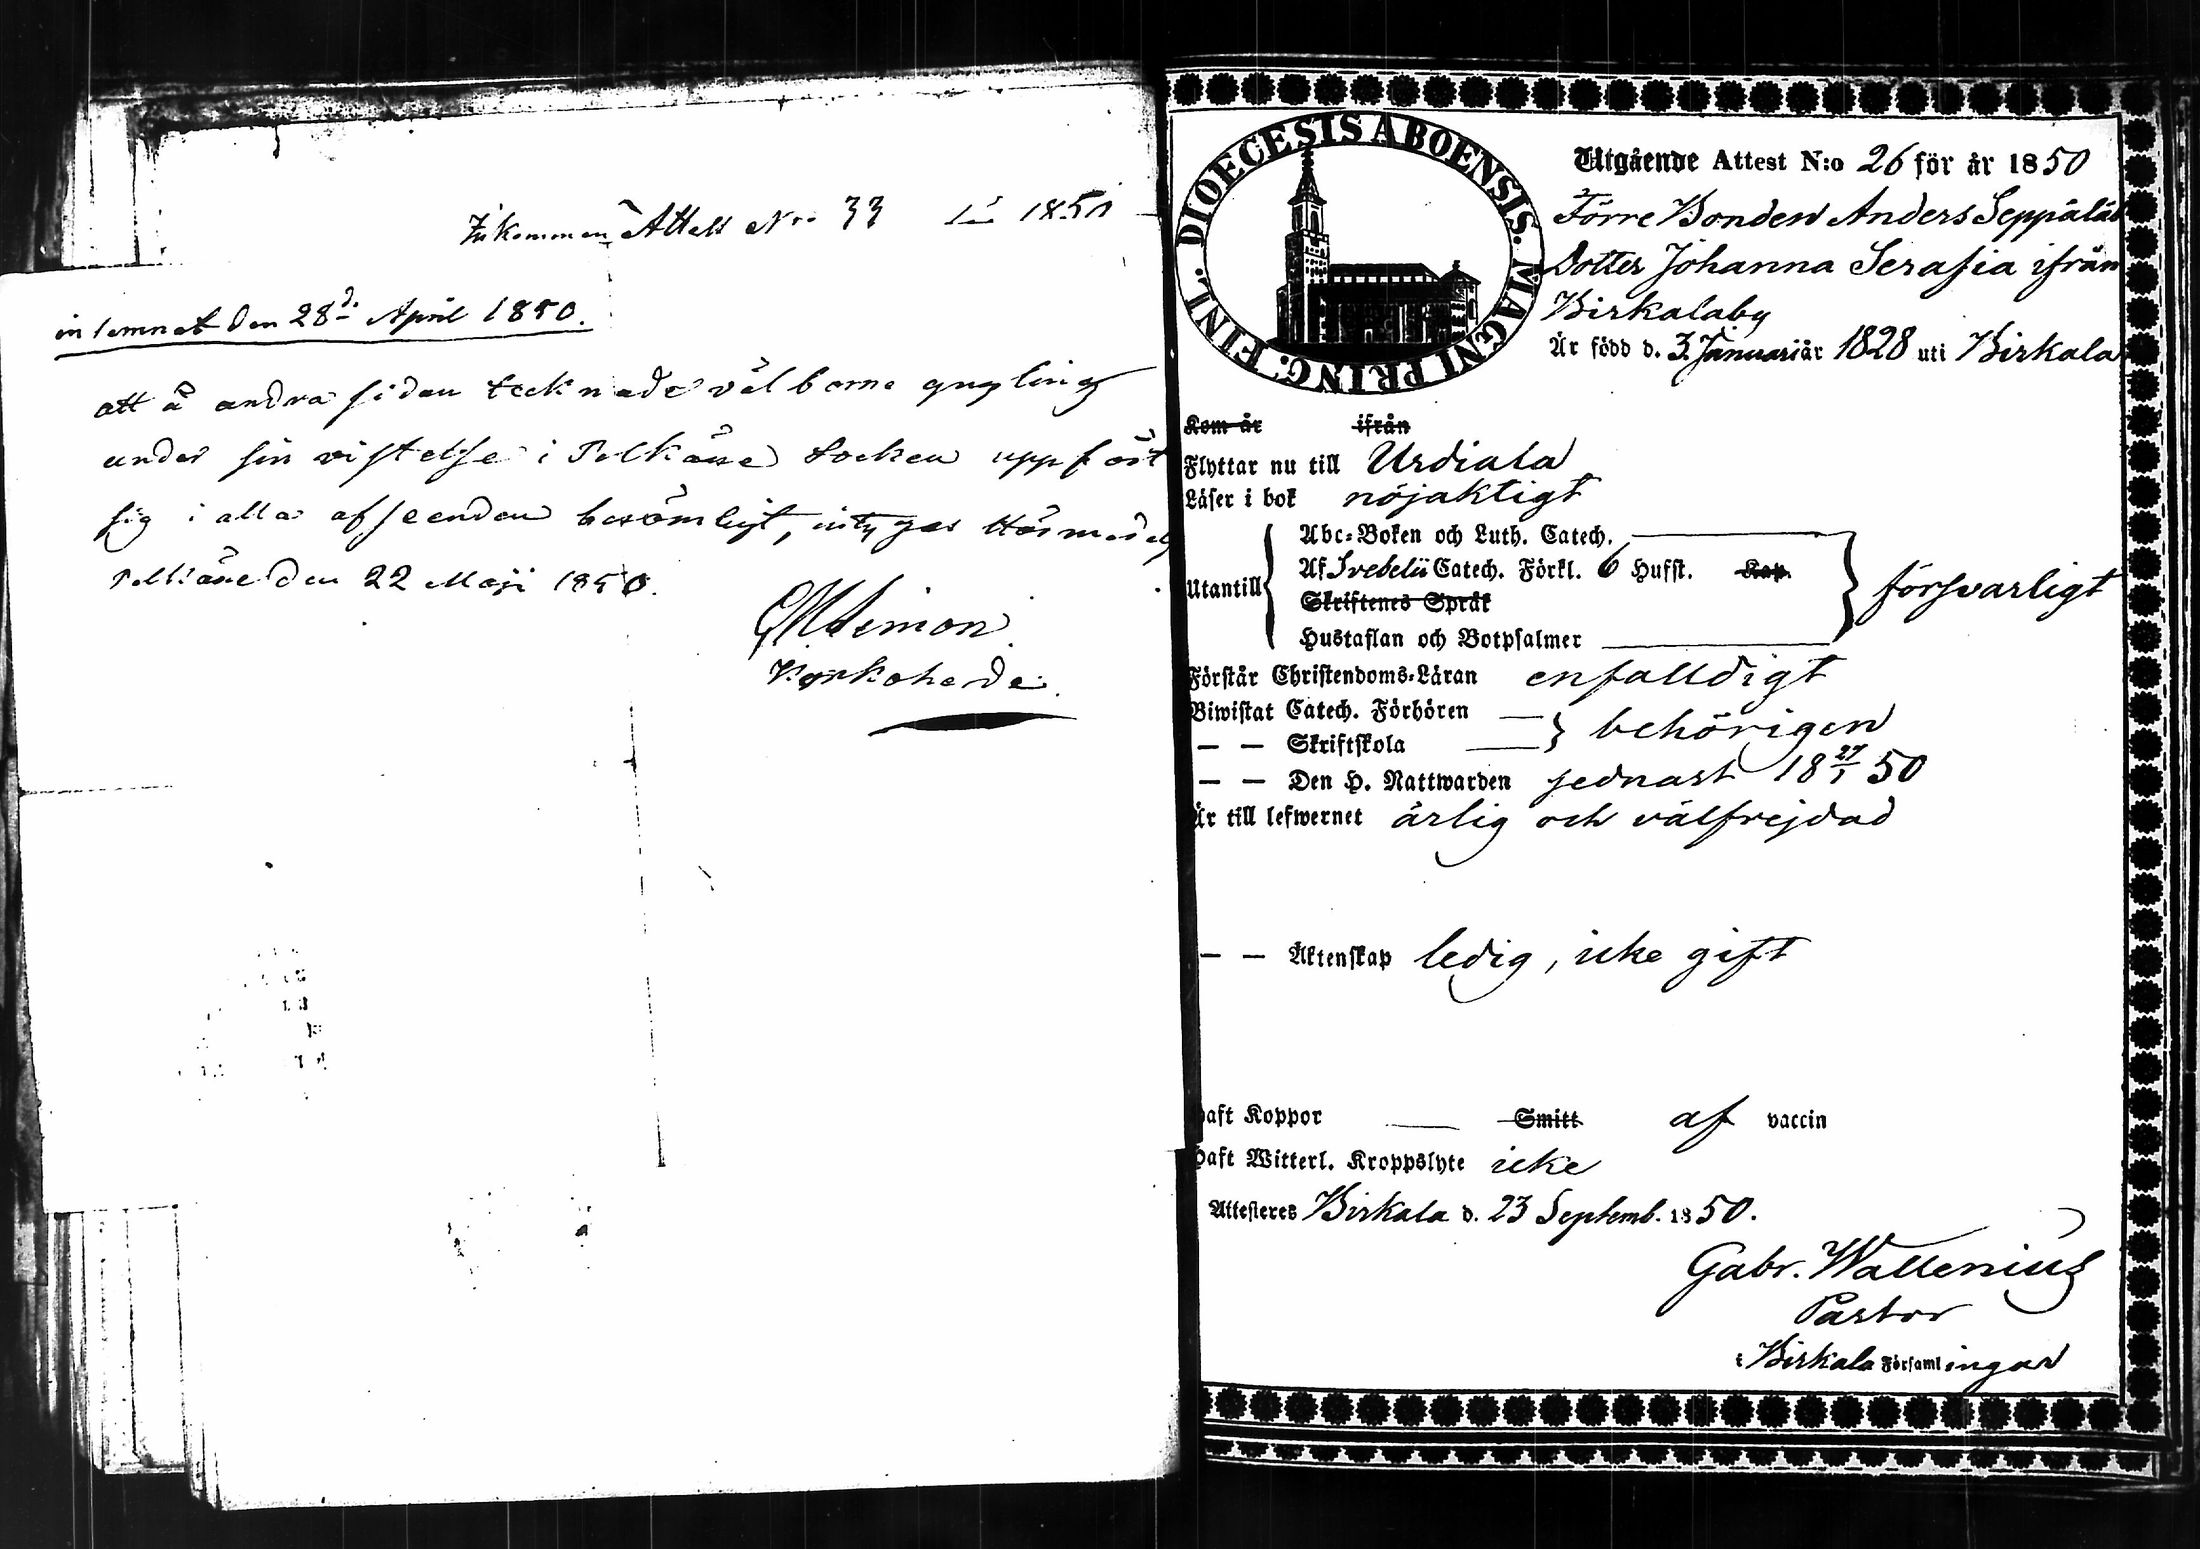 Inkommen Attest Nro 33 1850
inlemnat den 28d. April 1850.
att å andra sidan tecknade välborne yngling
under sin vistelse i Pelkäne Socken uppfört
sig i alla afseenden berömligt, intygas
Pelkäne den 22 Maji 1850.
Kyrkoherde.
DIOECESIS ABOENSIS. MAGNI PRINC. FINL.
Utgående Attest N:o 26 för år 1850
Förre Bonden Anders Seppäläs
Dotter Johanna Serafia ifrån
Birkalaby
Är född d. 3. Januari år 1828 uti Birkala
Kom år ifrån
Flyttar nu till Urdiala
Läser i bok nöjaktigt
Utantill
Abc-Boken och Luth. Catech.
Af Svebelii Catech. Förkl. 6 Hufst. Kap.
Skriftenes Språk
försvarligt
Hustaflan och Botpsalmer
Förstår Christendoms-Läran enfalldigt
Biwistat Catech. Förhören
— — Skriftskola
behörigen
— — Den H. Nattwarden sednast 18 27/1 50
Är till lefwernet ärlig och välfrejdad
— — Äktenskap ledig, icke gift
Haft Koppor — Smitt af vaccin
Haft Witterl. Kroppslyte icke
Attesteres Birkala d. 23 Septemb. 1850.
Gabr. Wallenius
Pastor
i Birkala Församlingar